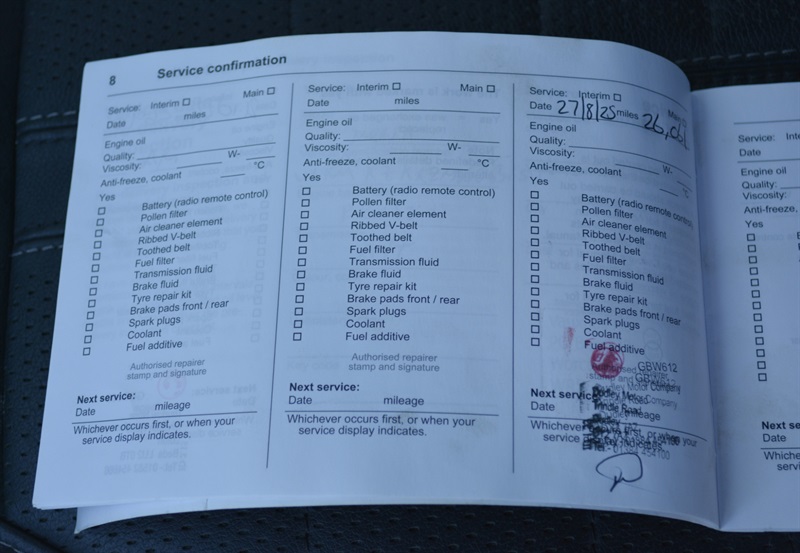 8
Service confirmation
Service: Interim ☐ Main ☐
Date miles
Engine oil
Quality:
Viscosity: W-
Anti-freeze, coolant °C
Yes
☐ Battery (radio remote control)
☐ Pollen filter
☐ Air cleaner element
☐ Ribbed V-belt
☐ Toothed belt
☐ Fuel filter
☐ Transmission fluid
☐ Brake fluid
☐ Tyre repair kit
☐ Brake pads front / rear
☐ Spark plugs
☐ Coolant
☐ Fuel additive
Authorised repairer
stamp and signature
Next service:
Date mileage
Whichever occurs first, or when your
service display indicates.
Service: Interim ☐ Main ☐
Date miles
Engine oil
Quality:
Viscosity: W-
Anti-freeze, coolant °C
Yes
☐ Battery (radio remote control)
☐ Pollen filter
☐ Air cleaner element
☐ Ribbed V-belt
☐ Toothed belt
☐ Fuel filter
☐ Transmission fluid
☐ Brake fluid
☐ Tyre repair kit
☐ Brake pads front / rear
☐ Spark plugs
☐ Coolant
☐ Fuel additive
Authorised repairer
stamp and signature
Next service:
Date mileage
Whichever occurs first, or when your
service display indicates.
Service: Interim ☐
Date 27/8/25 miles
Engine oil
Quality:
Viscosity: W-
Anti-freeze, coolant °C
Yes
☐ Battery (radio remote control)
☐ Pollen filter
☐ Air cleaner element
☐ Ribbed V-belt
☐ Toothed belt
☐ Fuel filter
☐ Transmission fluid
☐ Brake fluid
☐ Tyre repair kit
☐ Brake pads front / rear
☐ Spark plugs
☐ Coolant
☐ Fuel additive
GBW612
stamp and
Motor Company
Next service
Road
Date mileage
your
service
Service:
Date
Engine oil
Quality:
Viscosity:
Anti-freeze,
Yes
Date